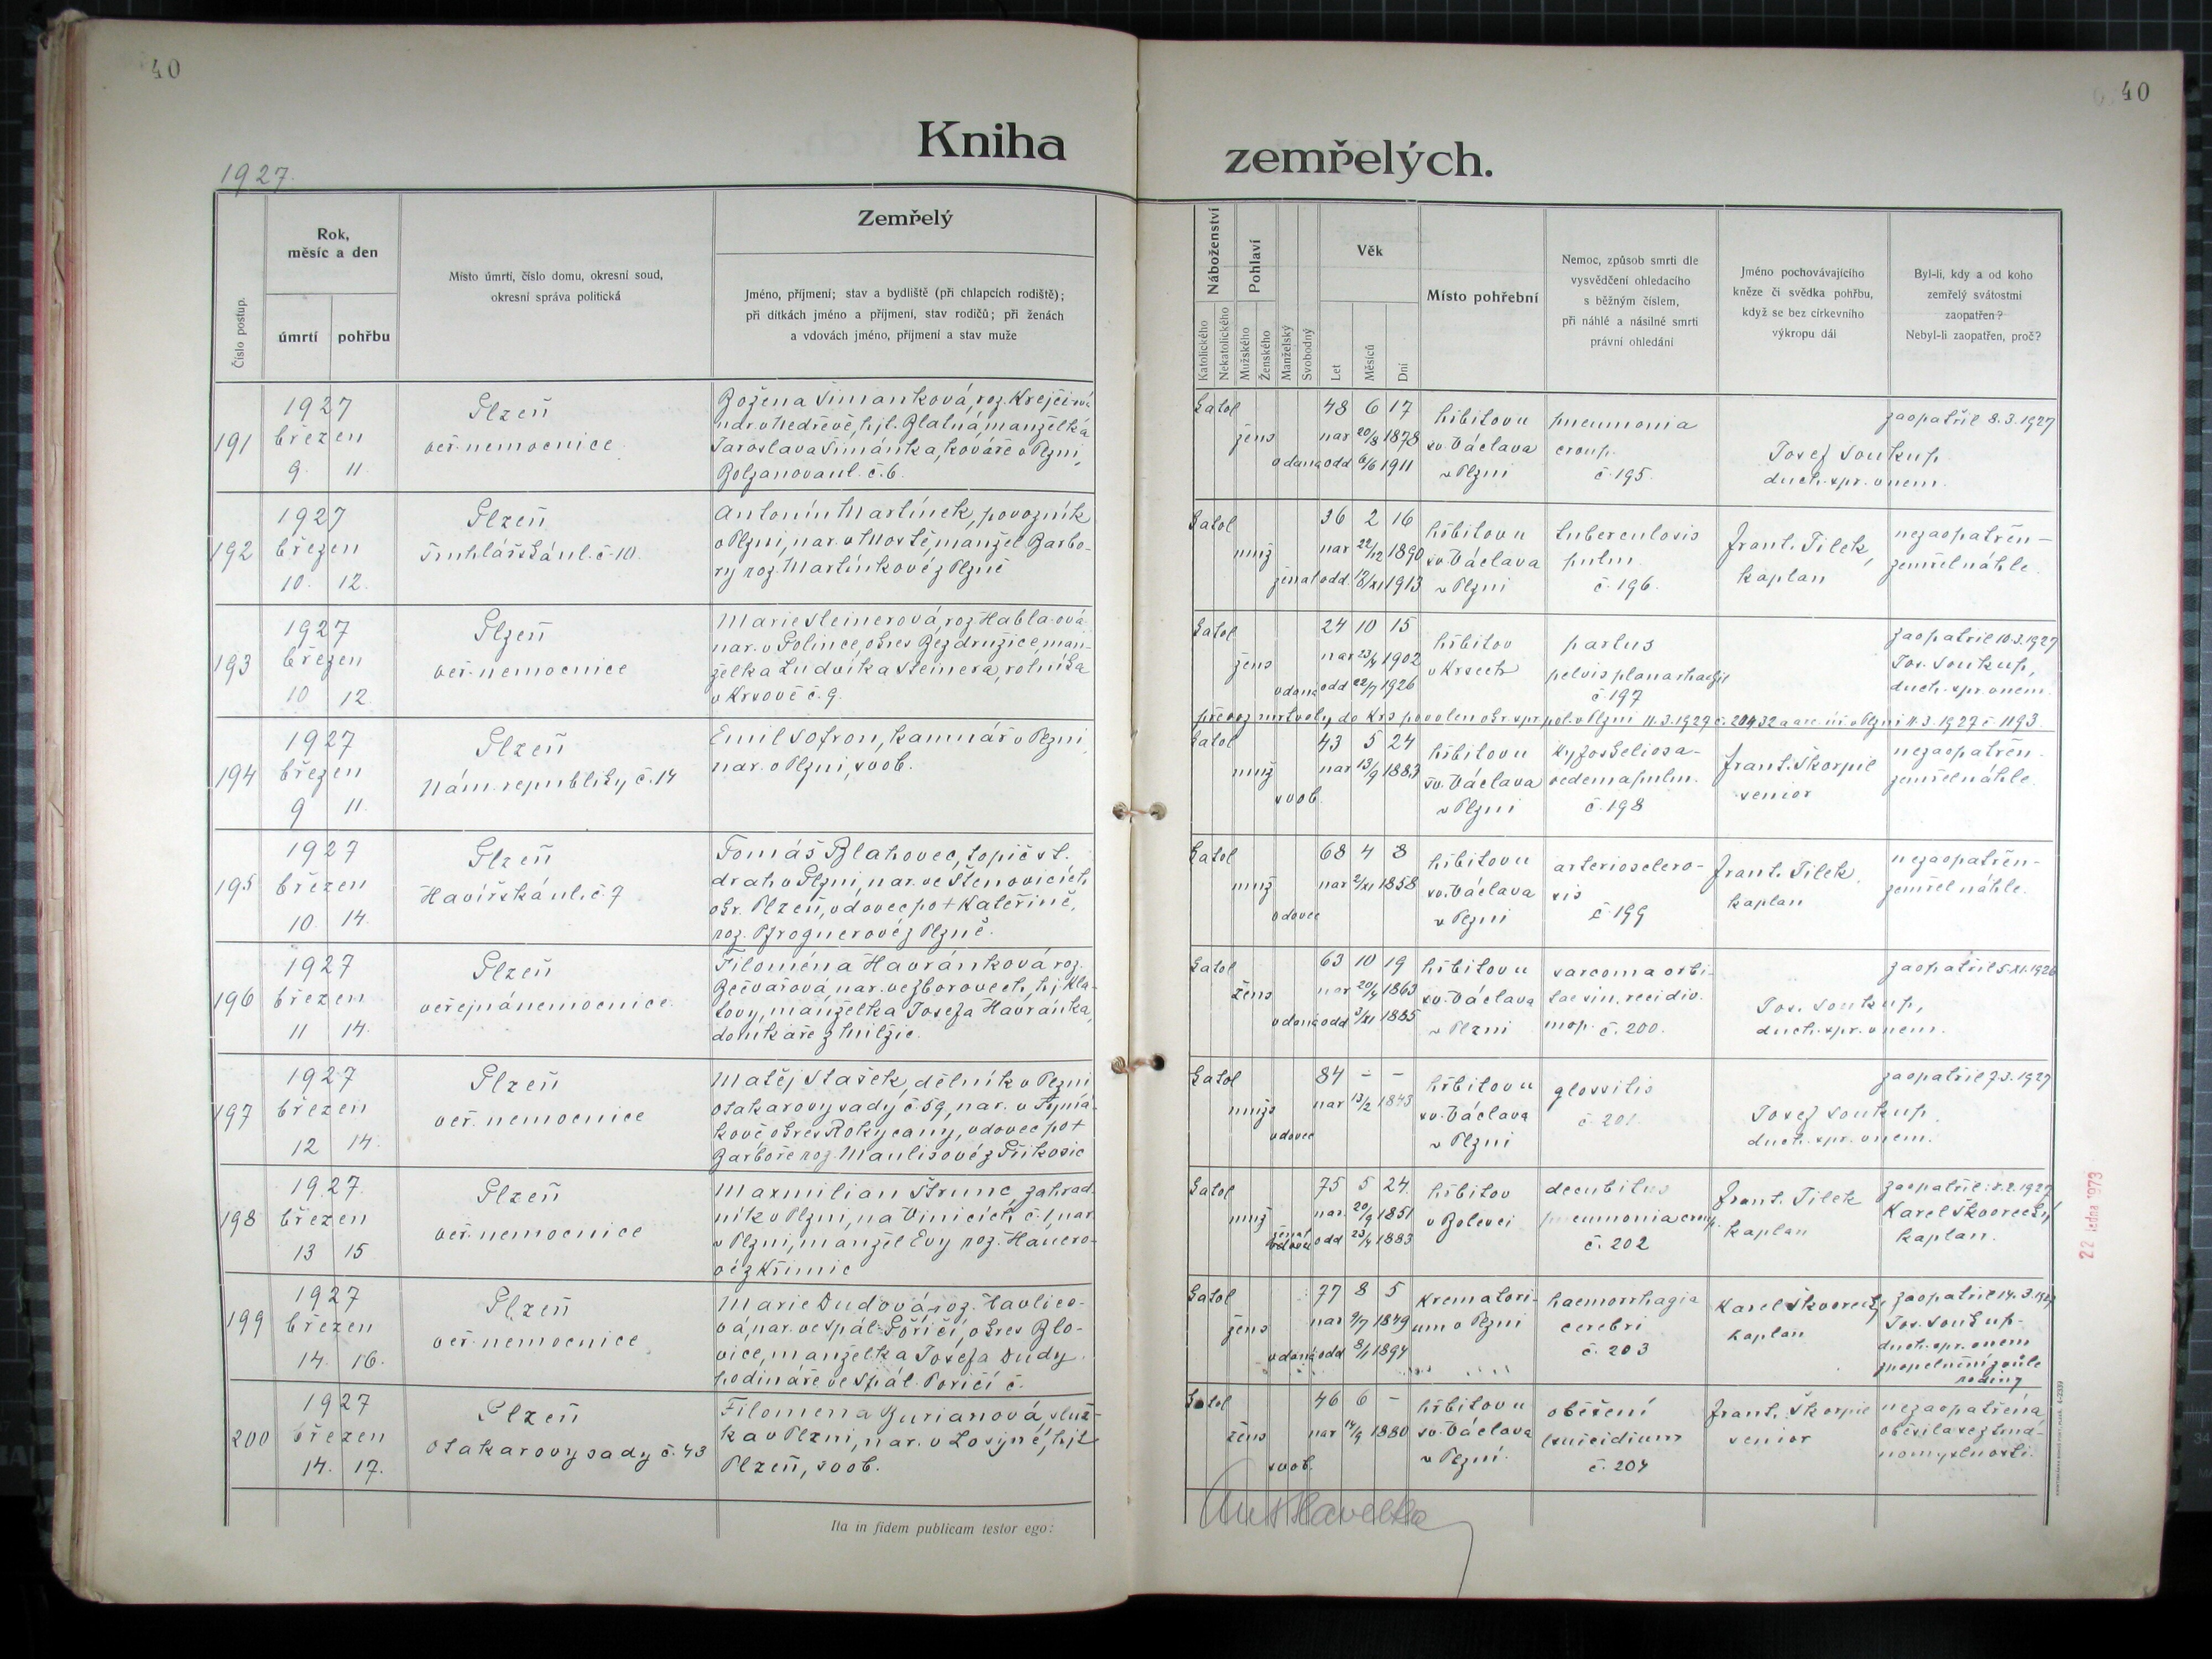 40
40
Kniha zemřelých.
1927.
Číslo postup.
Rok,
měsíc a den
úmrtí
pohřbu
Místo úmrtí, číslo domu, okresní soud,
okresní správa politická
Zemřelý
Jméno, příjmení; stav a bydliště (při chlapcích rodiště);
při dítkách jméno a příjmení, stav rodičů; při ženách
a vdovách jméno, příjmení a stav muže
Náboženství
Katolického
Nekatolického
Pohlaví
Mužského
Ženského
Manželský
Svobodný
Věk
Let
Měsíců
Dní
Místo pohřební
Nemoc, způsob smrti dle
vysvědčení ohledacího
s běžným číslem,
při náhlé a násilné smrti
právní ohledání
Jméno pochovávajícího
kněze či svědka pohřbu,
když se bez církevního
výkropu dál
Byl-li, kdy a od koho
zemřelý svátostmi
zaopatřen?
Nebyl-li zaopatřen, proč?
191
1927
březen
9. 11.
Plzeň
veř. nemocnice
Božena Šimanková, roz. Krejčová
nar. v hejt. Blatná, manželka
Jaroslava Šimánka, kováře v Plzni,
Bolzanova ul. č. 6.
katol
žens
vdaná
48 6 17
nar 20/8 1878
odd 6/6 1911
hřbitov u
sv. Václava
v Plzni
pneumonia
croup.
č. 195.
Josef Soukup,
duch. spr. v nem.
zaopatřil 8.3.1927
192
1927
březen
10. 12.
Plzeň
Truhlářská ul. č. 10.
Antonín Martínek, povozník
v Plzni, nar. v Mostě, manžel Barbo-
ry roz. Martínkové z Plzně
katol
muž
ženat
36 2 16
nar 22/12 1890
odd. 1913
hřbitov u
sv. Václava
v Plzni
tuberculosis
pulm.
č. 196.
Frant. Tilek,
kaplan
nezaopatřen-
zemřel náhle.
193
1927
březen
10 12.
Plzeň
veř. nemocnice
Marie Steinerová, roz.
nar. v Polince, okres Bezdružice, man-
želka Ludvíka Steinera, rolníka
v Krsově č. 9.
katol
žens
vdaná
24 10 15
nar 1902
odd 22/7 1926
hřbitov
v Krsech
partus
pelvis plana
č. 197
zaopatřil 10.3.1927
Jos. Soukup,
duch. spr. v nem.
převoz mrtvoly do Krs povolen okr. spr. pol. v Plzni 11.3.1927 č. 20432 a v Plzni 11.3.1927 č. 1193.
194
1927
březen
9 11.
Plzeň
Nám. republiky č. 14
Emil Sofron, kamnář v Plzni,
nar. v Plzni, svob.
katol
muž
svob.
43 5 24
nar 13/9 1883
hřbitov u
sv. Václava
v Plzni
kyfoskoliosa-
oedema pulm.
č. 198
Frant. Škorpil
senior
nezaopatřen-
zemřel náhle.
195
1927
březen
10. 14.
Plzeň
Havířská ul. č. 7
Tomáš Blahovec, topič st.
drah v Plzni, nar. ve Štěnovicích
okr. Plzeň, vdovec po † Kateřině,
roz. Pfrognerové z Plzně.
katol
muž
vdovec
68 4 8
nar 2/XI 1858
hřbitov u
sv. Václava
v Plzni
arteriosclero-
sis
č. 199
Frant. Tilek.
kaplan
nezaopatřen-
zemřel náhle.
196
1927
březen
11 14.
Plzeň
veřejná nemocnice
Filoména Havránková roz.
Bečvářová nar. ve Zborovech, hj. Kla-
tovy, manželka Josefa Havránka,
domkáře z Milžic.
katol
žens
vdaná
63 10 19
nar 20/4 1863
odd 3/XI 1885
hřbitov u
sv. Václava
v Plzni
sarcoma orbi-
tae sin. recidiv.
č. 200.
Jos. Soukup,
duch. spr. v nem.
zaopatřil 5.XI.1926
197
1927
březen
12 14.
Plzeň
veř. nemocnice
Matěj Stašek, dělník v Plzni
Otakarovy sady č. 59, nar. v Tymá-
kově okres Rokycany, vdovec po †
Barboře roz. Maulisové z Příkosic
katol
mužs
vdovec
84 - -
nar 13/2 1843
hřbitov u
sv. Václava
v Plzni
glossitis
č. 201.
Josef Soukup,
duch. spr. v nem.
zaopatřil 7.3.1927
198
1927.
březen
13 15
Plzeň
veř. nemocnice
Maxmilian Štrunc, zahrad-
ník v Plzni, na Vinicích č. 1, nar.
v Plzni, manžel Evy roz. Hauero-
vé z Křimic
katol
muž
ženat
75 5 24.
nar. 20/9 1851
odd 23/4 1883
hřbitov
v Bolevci
decubitus
pneumonia croup.
č. 202
Frant. Tilek
kaplan
zaopatřil: 1927
Karel Škvorecký
kaplan.
199
1927
březen
14. 16.
Plzeň
veř. nemocnice
Marie Dudová, roz. Havlico-
vá, nar. ve Spál. Poříčí, okres Blo-
vice, manželka Josefa Dudy
podináře ve Spál. Poříčí č.
katol
žens
vdaná
77 8 5
nar 9/7 1849
odd 8/1 1894
Krematori-
um v Plzni
haemorrhagia
cerebri
č. 203
Karel Škvorecký
kaplan
zaopatřil 14.3.1927
Jos. Soukup-
duch. spr. v nem
zpopelnění z vůle
rodiny
200
1927
březen
14. 17.
Plzeň
Otakarovy sady č. 43
Filomena Burianová, služ-
ka v Plzni, nar. v Losyné, hjt
Plzeň, svob.
katol
žens
svob.
46 6 -
nar 14/9 1880
hřbitov u
sv. Václava
v Plzni.
oběšení
(suicidium
č. 204
Frant. Škorpil
senior
nezaopatřena,
oběsila se
Ita in fidem publicam testor ego:
Ant Havelka
22. ledna 1973